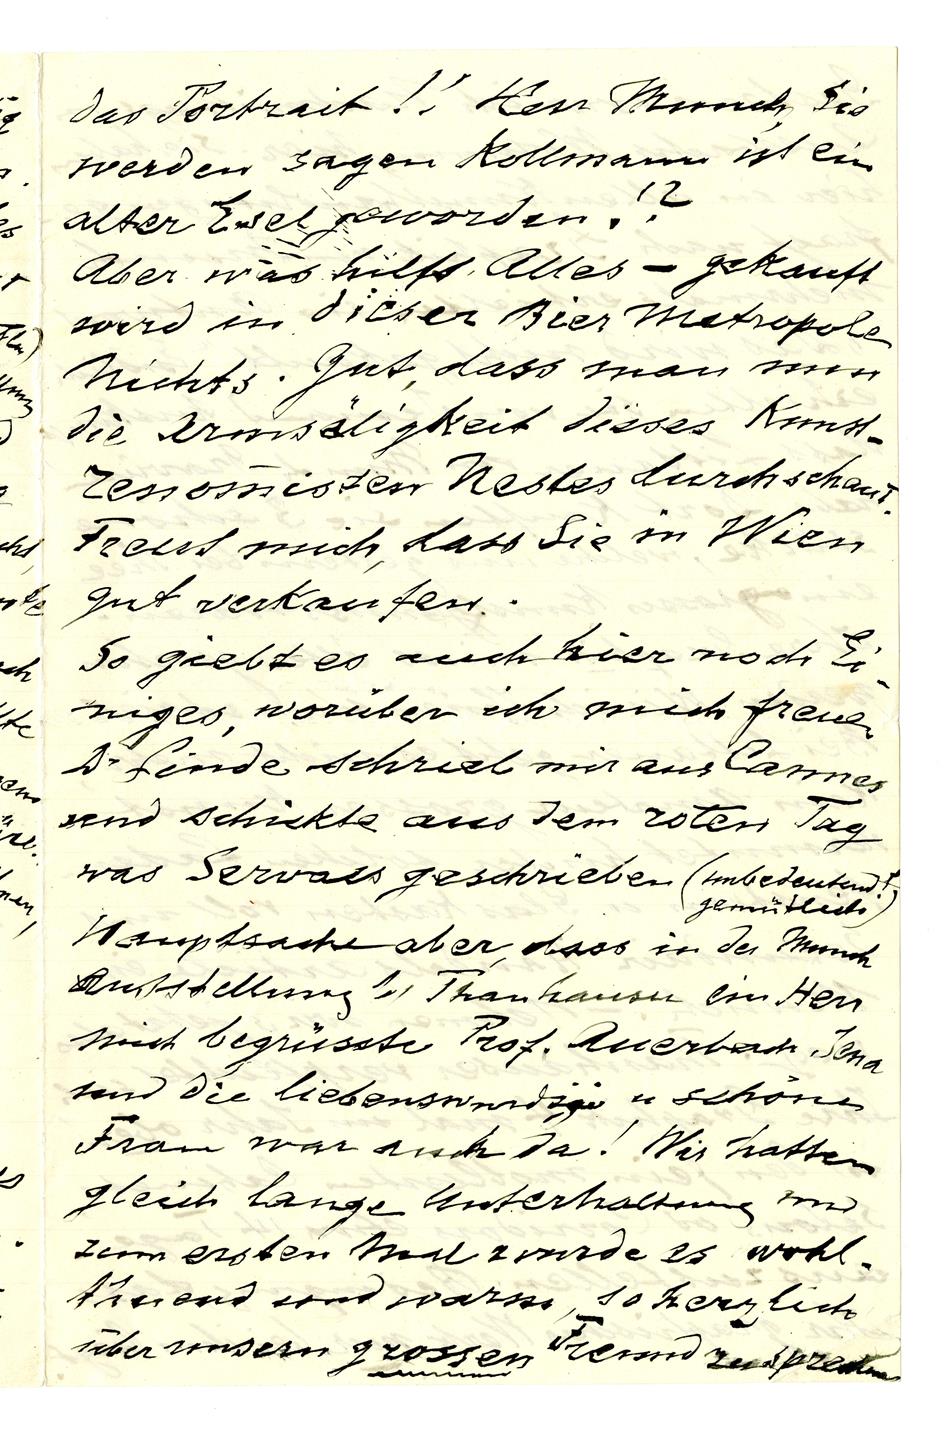 das Portrait!! Herr Munch, Sie
werden sagen Kollmann ist ein
alter Esel geworden!?
Aber was hilft Alles – gekauft
wird in dieser Bier Metropole
Nichts. Gut, dass man nun
die Armsäligkeit dieses Kunst-
renomisten Nestes durchschaut.
Freut mich, dass Sie in Wien
gut verkaufen.
So giebt es auch hier noch Ei-
niges, worüber ich mich freue
Dr Linde schrieb mir aus Cannes
und schickte aus dem roten Tag
was Servaes geschrieben (unbedeutend!
gemütlich)
Hauptsache aber, dass in der Munch
Ausstellung bei Thanhauser ein Herr
mich begrüsste Prof. Auerbach Jena
und die liebenswürdige u schöne
Frau war auch da! Wir hatten
gleich lange Unterhaltung und
zum ersten Mal wurde es wohl-
thuend und warm, so herzlich
über unsern grossen Freund zu sprechen